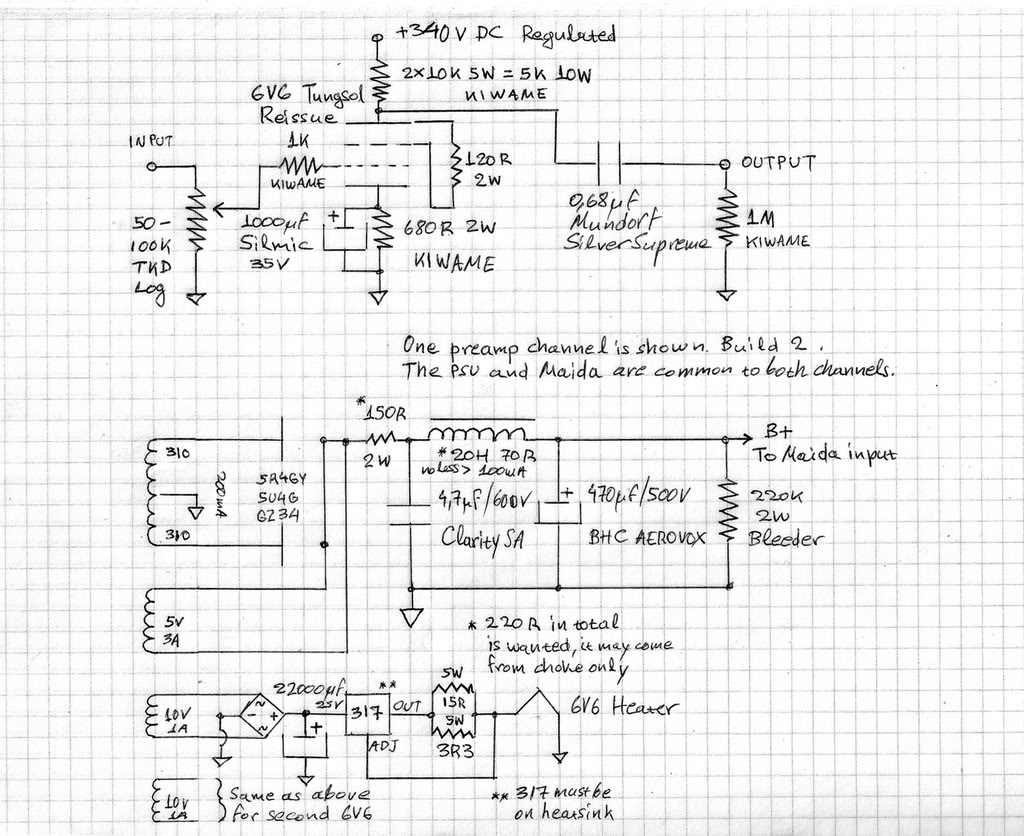 +340V DC Regulated
2x10K 5W = 5K 10W
KIWAME
6V6 Tungsol
Reissue
INPUT
1K
KIWAME
120R
2W
OUTPUT
50-
100K
TKD
Log
1000µF
Silmic
35V
+
680R 2W
KIWAME
0,68µF
Mundorf
Silver Supreme
1M
KIWAME
One preamp channel is shown. Build 2.
The PSU and Maida are common to both channels.
*150R
2W
310
200mA
310
5R4GY
5U4G
GZ34
*20H 70R
no less > 100mA
B+
To Maida input
4,7µF/600V
Clarity SA
+
470µF/500V
BHC AEROVOX
220K
2W
Bleeder
5V
3A
* 220R in total
is wanted, it may come
from choke only
10V
1A
~
- +
~
22000µF
25V
+
**
317
OUT
ADJ
5W
15R
5W
3R3
6V6 Heater
10V
1A
Same as above
for second 6V6
** 317 must be
on heatsink